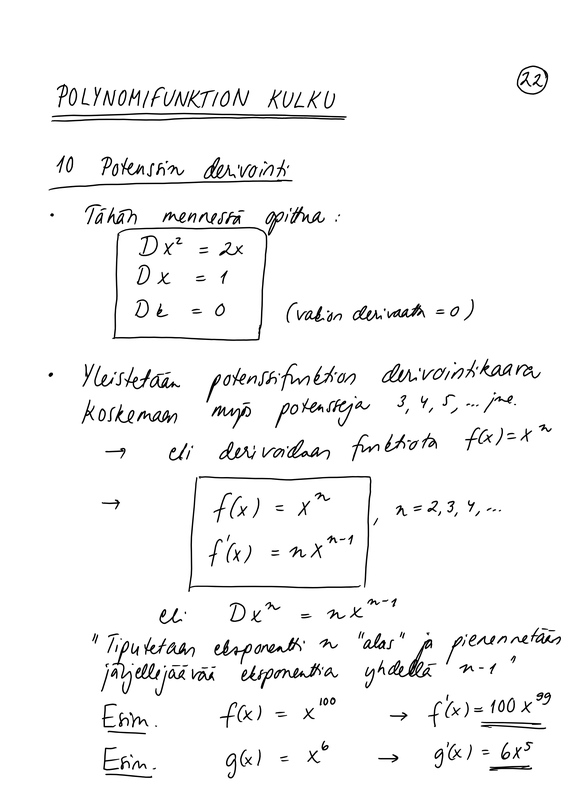 22
POLYNOMIFUNKTION KULKU
10 Potenssin derivointi
• Tähän mennessä opittua :
Dx² = 2x
Dx = 1
Dk = 0 (vakion derivaatta = 0)
• Yleistetään potenssifunktion derivointikaava
koskemaan myös potensseja 3, 4, 5, ... jne.
→ eli derivoidaan funktiota f(x) = xⁿ
→ f(x) = xⁿ , n = 2, 3, 4, ...
f'(x) = nxⁿ⁻¹
eli Dxⁿ = nxⁿ⁻¹
"Tiputetaan eksponentti n "alas" ja pienennetään
järjellejäävää eksponenttia yhdellä n-1"
Esim. f(x) = x¹⁰⁰ → f'(x) = 100x⁹⁹
Esim. g(x) = x⁶ → g'(x) = 6x⁵